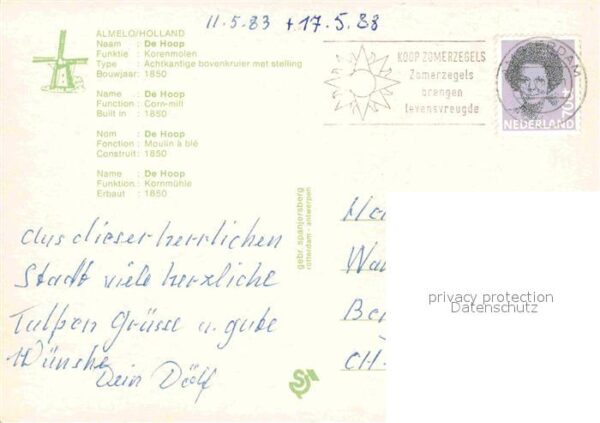 11.5.83 + 17.5.88
ALMELO/HOLLAND
Naam : De Hoop
Funktie : Korenmolen
Type : Achtkantige bovenkruier met stelling
Bouwjaar: 1850
Name : De Hoop
Function : Corn-mill
Built in : 1850
Nom : De Hoop
Fonction : Moulin à blé
Construit: 1850
Name : De Hoop
Funktion : Kornmühle
Erbaut : 1850
KOOP ZOMERZEGELS
Zomerzegels
brengen
levensvreugde
70 ct
NEDERLAND
gebr. spanjersberg
rotterdam - antwerpen
Aus dieser herrlichen
Stadt viele herzliche
Tulpen Grüsse u. gute
Wünsche
Dein Dölf
CH-
privacy protection
Datenschutz